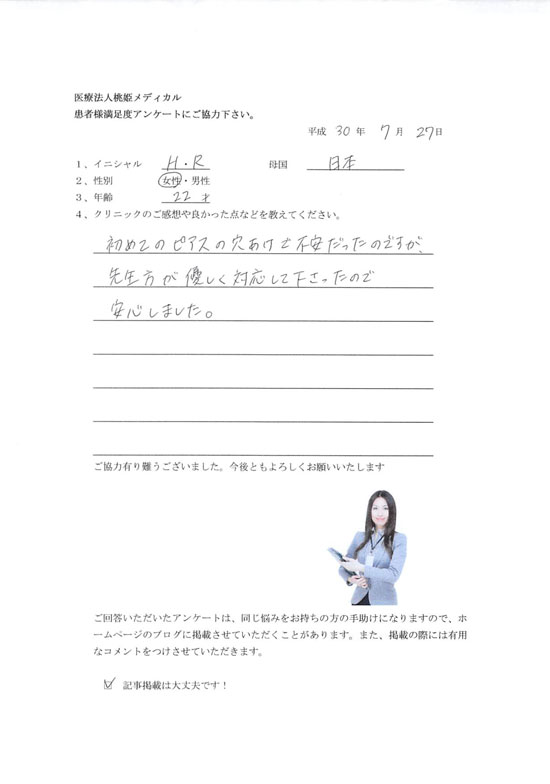 医療法人桃姫メディカル
患者様満足度アンケートにご協力下さい。
平成 30 年 7 月 27日
1、イニシャル H・R 母国 日本
2、性別 女性・男性
3、年齢 22 才
4、クリニックのご感想や良かった点などを教えてください。
初めてのピアスの穴あけで不安だったのですが、
先生方が優しく対応して下さったので
安心しました。
ご協力有り難うございました。今後ともよろしくお願いいたします
ご回答いただいたアンケートは、同じ悩みをお持ちの方の手助けになりますので、ホ
ームページのブログに掲載させていただくことがあります。また、掲載の際には有用
なコメントをつけさせていただきます。
☑ 記事掲載は大丈夫です！